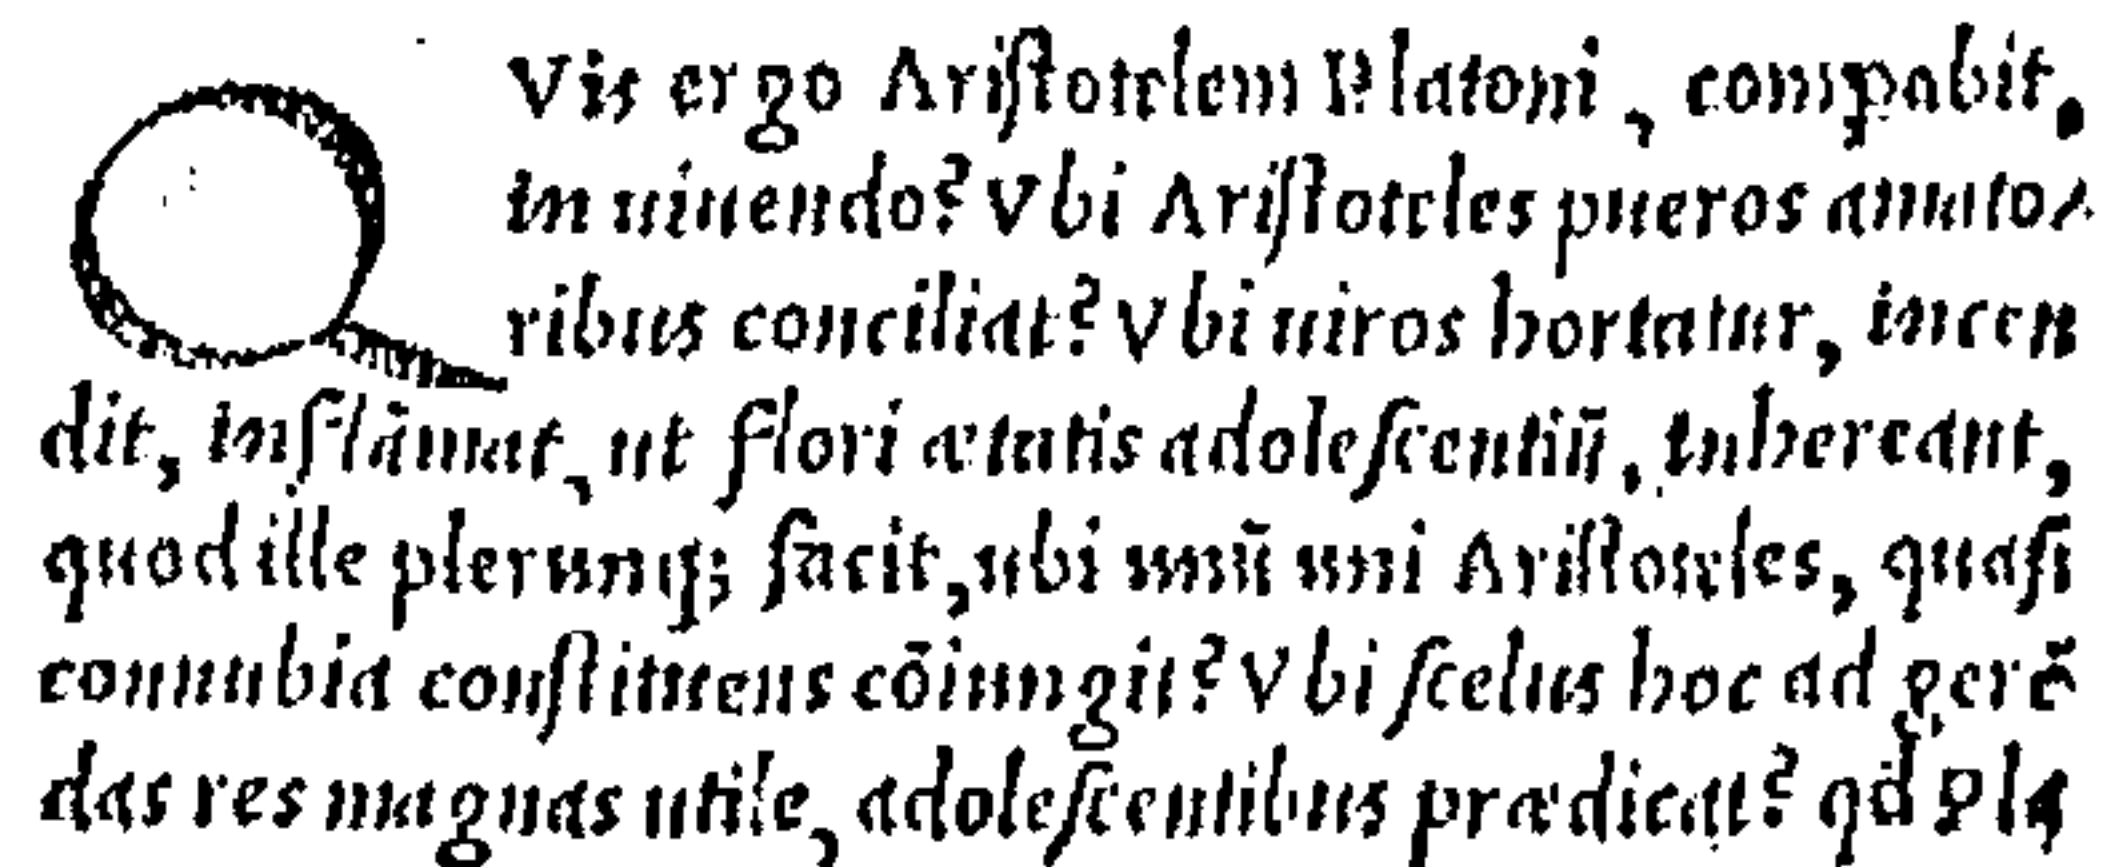 QVis ergo Ariſtotelem Platoni, compabit,
in uiuendo? Vbi Ariſtoteles pueros amato/
ribus conciliat? Vbi uiros hortatur, incen
dit, inflãmat, ut flori ætatis adoleſcentiũ, inhereant,
quod ille plerunq; facit, ubi unũ uni Ariſtoteles, quaſi
connubia conſtituens cõiungit? Vbi ſcelus hoc ad gerẽ
das res magnas utile, adoleſcentibus prædicat? qđ